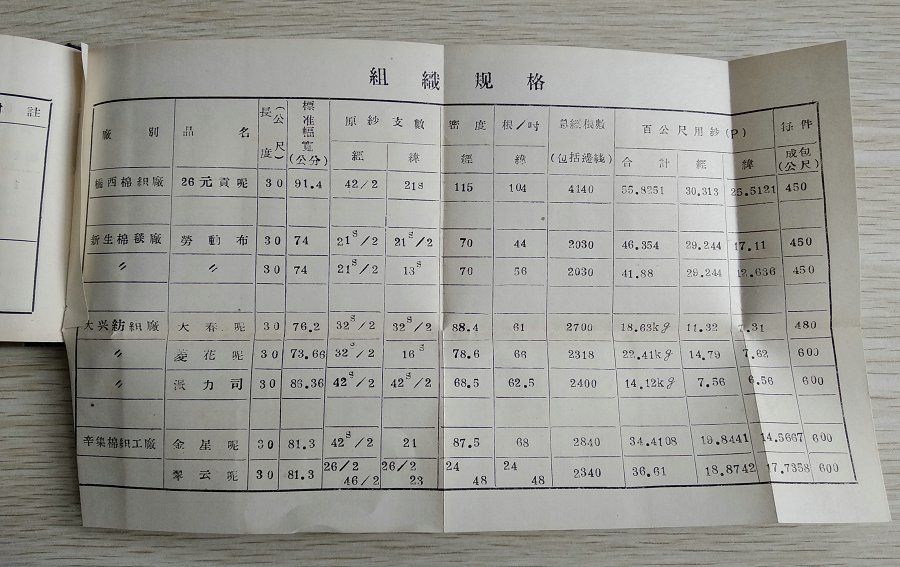 附註
組織规格
廠別 品名 長度(公尺) 標准幅寬(公分) 原紗支數 密度 根/吋 总經根數(包括邊綫) 百公尺用紗(P) 每件成包(公尺)
經 緯 經 緯 合計 經 緯
西棉織廠 26元貢呢 30 91.4 42/2 21s 115 104 4140 55.8251 30.313 25.5121 450
新生棉毯廠 勞動布 30 74 21s/2 21s/2 70 44 2030 46.354 29.244 17.11 450
〃 〃 30 74 21s/2 13s 70 56 2030 41.88 29.244 12.636 450
大兴紡組廠 大春呢 30 76.2 32s/2 32s/2 88.4 61 2700 18.63kg 11.32 7.31 480
〃 菱花呢 30 73.66 32s/2 16s 78.6 66 2318 22.41kg 14.79 7.62 600
〃 派力司 30 86.36 42s/2 42s/2 68.5 62.5 2400 14.12kg 7.56 6.56 600
辛集棉織工廠 金星呢 30 81.3 42s/2 21 87.5 68 2840 34.4108 19.8441 14.5667 600
翠云呢 30 81.3 26/2 46/2 26/2 23 24 48 24 48 2340 36.61 18.8742 17.7358 600